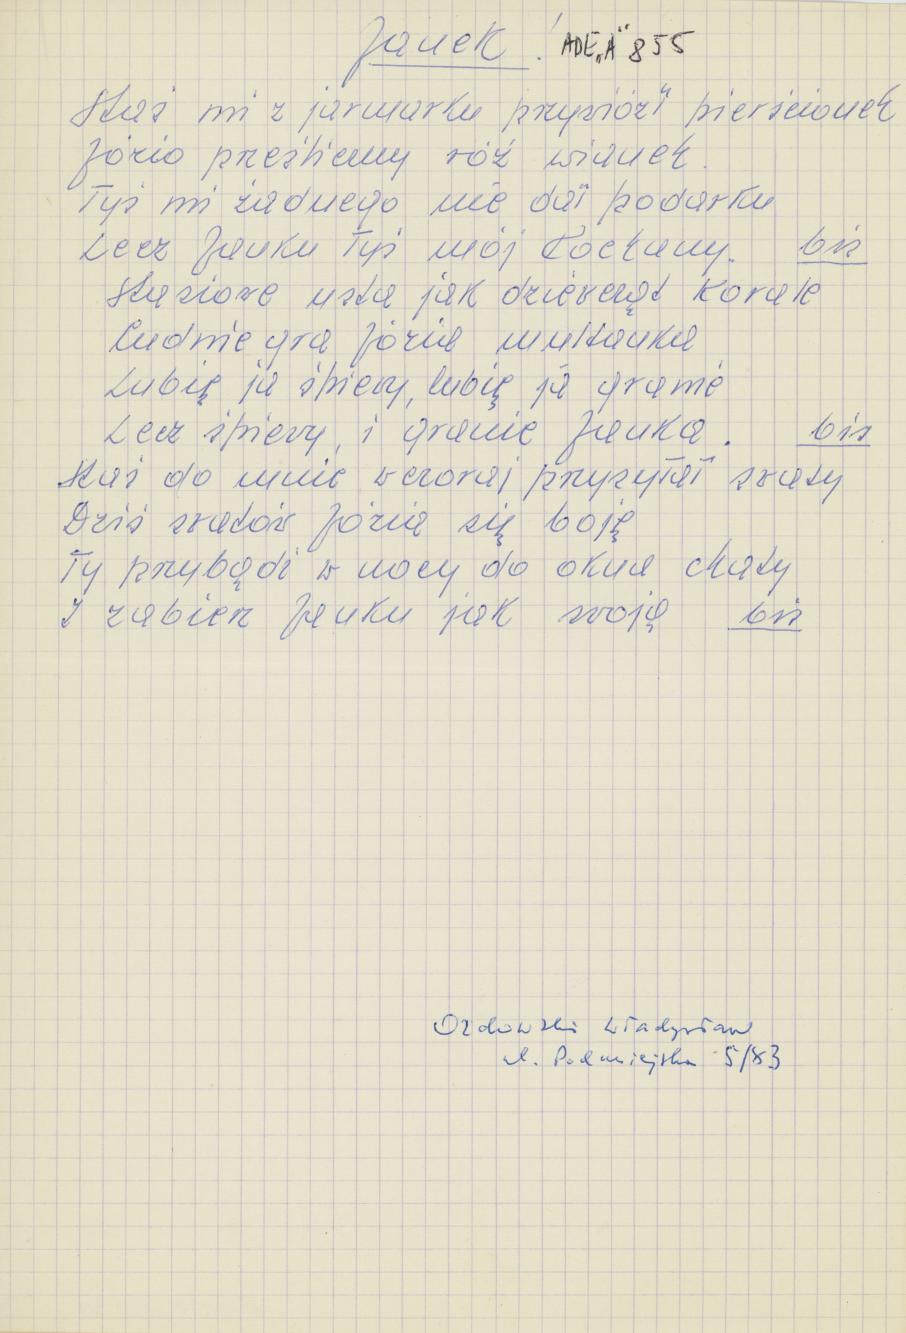 Janek! ADE „A" 855
Staś mi z jarmarku przywiózł pierścionek
Józio prześliczny róż wianek.
Tyś mi żadnego nie dał podarku
Lecz Janku Tyś mój Kochany. bis
Stasiowe usta jak dziewcząt korale
Cudnie gra Józia multanka
Lubię ja śpiewy, lubię ja granie
Lecz śpiewy, i granie Janka. bis
Staś do mnie wczoraj przysyłał swaty
Dziś swatów Józia się boję
Ty przybądź w nocy do okna chaty
I zabierz Janku jak swoją bis
Ozdowski Władysław
ul. Podmiejska 5/83